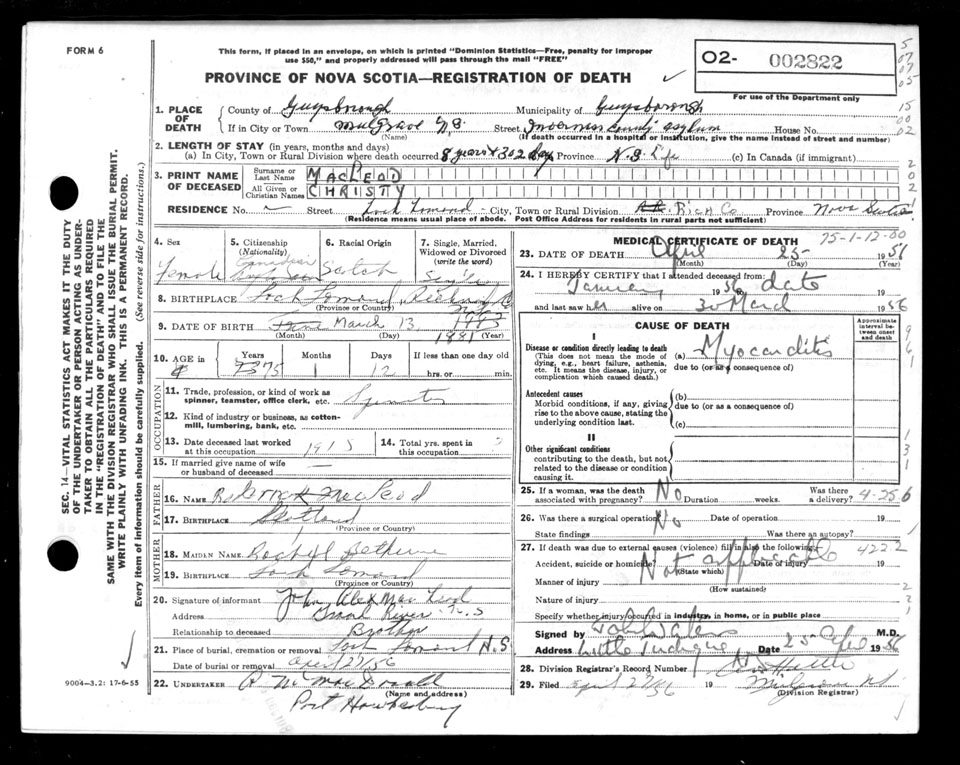 FORM 6
This form, if placed in an envelope, on which is printed "Dominion Statistics—Free, penalty for improper
use $50," and properly addressed will pass through the mail "FREE"
PROVINCE OF NOVA SCOTIA—REGISTRATION OF DEATH
02- 002822
For use of the Department only
1. PLACE OF DEATH
County of Guysborough Municipality of Guysborough
If in City or Town Mulgrave N.S. Street Inverness County asylum House No.
(Name) (If death occurred in a hospital or institution, give the name instead of street and number)
2. LENGTH OF STAY (in years, months and days)
(a) In City, Town or Rural Division where death occurred 8 years & 302 days Province N.S. Life (c) In Canada (if immigrant)
3. PRINT NAME OF DECEASED
Surname or Last Name MACLEOD
All Given or Christian Names CHRISTY
RESIDENCE No. Street Loch Lomond City, Town or Rural Division Rich Co Province Nova Scotia
(Residence means usual place of abode. Post Office Address for residents in rural parts not sufficient)
4. Sex Female
5. Citizenship (Nationality) Canadian
6. Racial Origin Scotch
7. Single, Married, Widowed or Divorced (write the word) Single
8. BIRTHPLACE Loch Lomond, Richmond Co
(Province or Country)
9. DATE OF BIRTH March 13 1881
(Month) (Day) (Year)
10. AGE in Years Months Days If less than one day old
75 1 12 hrs. or min.
OCCUPATION
11. Trade, profession, or kind of work as spinner, teamster, office clerk, etc. Spinster
12. Kind of industry or business, as cotton-mill, lumbering, bank, etc.
13. Date deceased last worked at this occupation 1915
14. Total yrs. spent in this occupation
15. If married give name of wife or husband of deceased —
FATHER
16. NAME MacLeod
17. BIRTHPLACE Scotland
(Province or Country)
MOTHER
18. MAIDEN NAME Bethune
19. BIRTHPLACE Loch Lomond
(Province or Country)
20. Signature of informant John Alex MacLeod
Address Grand River N.S
Relationship to deceased Brother
21. Place of burial, cremation or removal Loch Lomond N.S
Date of burial or removal April 27/56
22. UNDERTAKER MacDonald
(Name and address)
Port Hawkesbury
MEDICAL CERTIFICATE OF DEATH
75-1-12-00
23. DATE OF DEATH April 25 1956
(Month) (Day) (Year)
24. I HEREBY CERTIFY that I attended deceased from:
January 1956 date 19
and last saw her alive on 30 March 1956
CAUSE OF DEATH
Approximate interval between onset and death
I
Disease or condition directly leading to death
(This does not mean the mode of dying, e.g., heart failure, asthenia, etc. It means the disease, injury, or complication which caused death.)
(a) Myocarditis
due to (or as a consequence of)
Antecedent causes
Morbid conditions, if any, giving rise to the above cause, stating the underlying condition last.
(b)
due to (or as a consequence of)
(c)
II
Other significant conditions
contributing to the death, but not related to the disease or condition causing it.
25. If a woman, was the death associated with pregnancy? No Duration weeks. Was there a delivery?
4-25 6
26. Was there a surgical operation? No Date of operation 19
State findings Was there an autopsy?
27. If death was due to external causes (violence) fill in also the following: 4222
Accident, suicide or homicide? Not applicable Date of injury 19
(State which)
Manner of injury
(How sustained)
Nature of injury
Specify whether injury occurred in industry, in home, or in public place
Signed by M.D.
Address Little Judique Date 25 April 1956
28. Division Registrar's Record Number
29. Filed April 27/56 19
(Division Registrar)
SEC. 14—VITAL STATISTICS ACT MAKES IT THE DUTY
OF THE UNDERTAKER OR PERSON ACTING AS UNDER-
TAKER TO OBTAIN ALL THE PARTICULARS REQUIRED
IN THE "REGISTRATION OF DEATH" AND TO FILE THE
SAME WITH THE DIVISION REGISTRAR WHO SHALL ISSUE THE BURIAL PERMIT.
WRITE PLAINLY WITH UNFADING INK. THIS IS A PERMANENT RECORD.
Every item of information should be carefully supplied. (See reverse side for instructions.)
9004-3.21 17-6-55